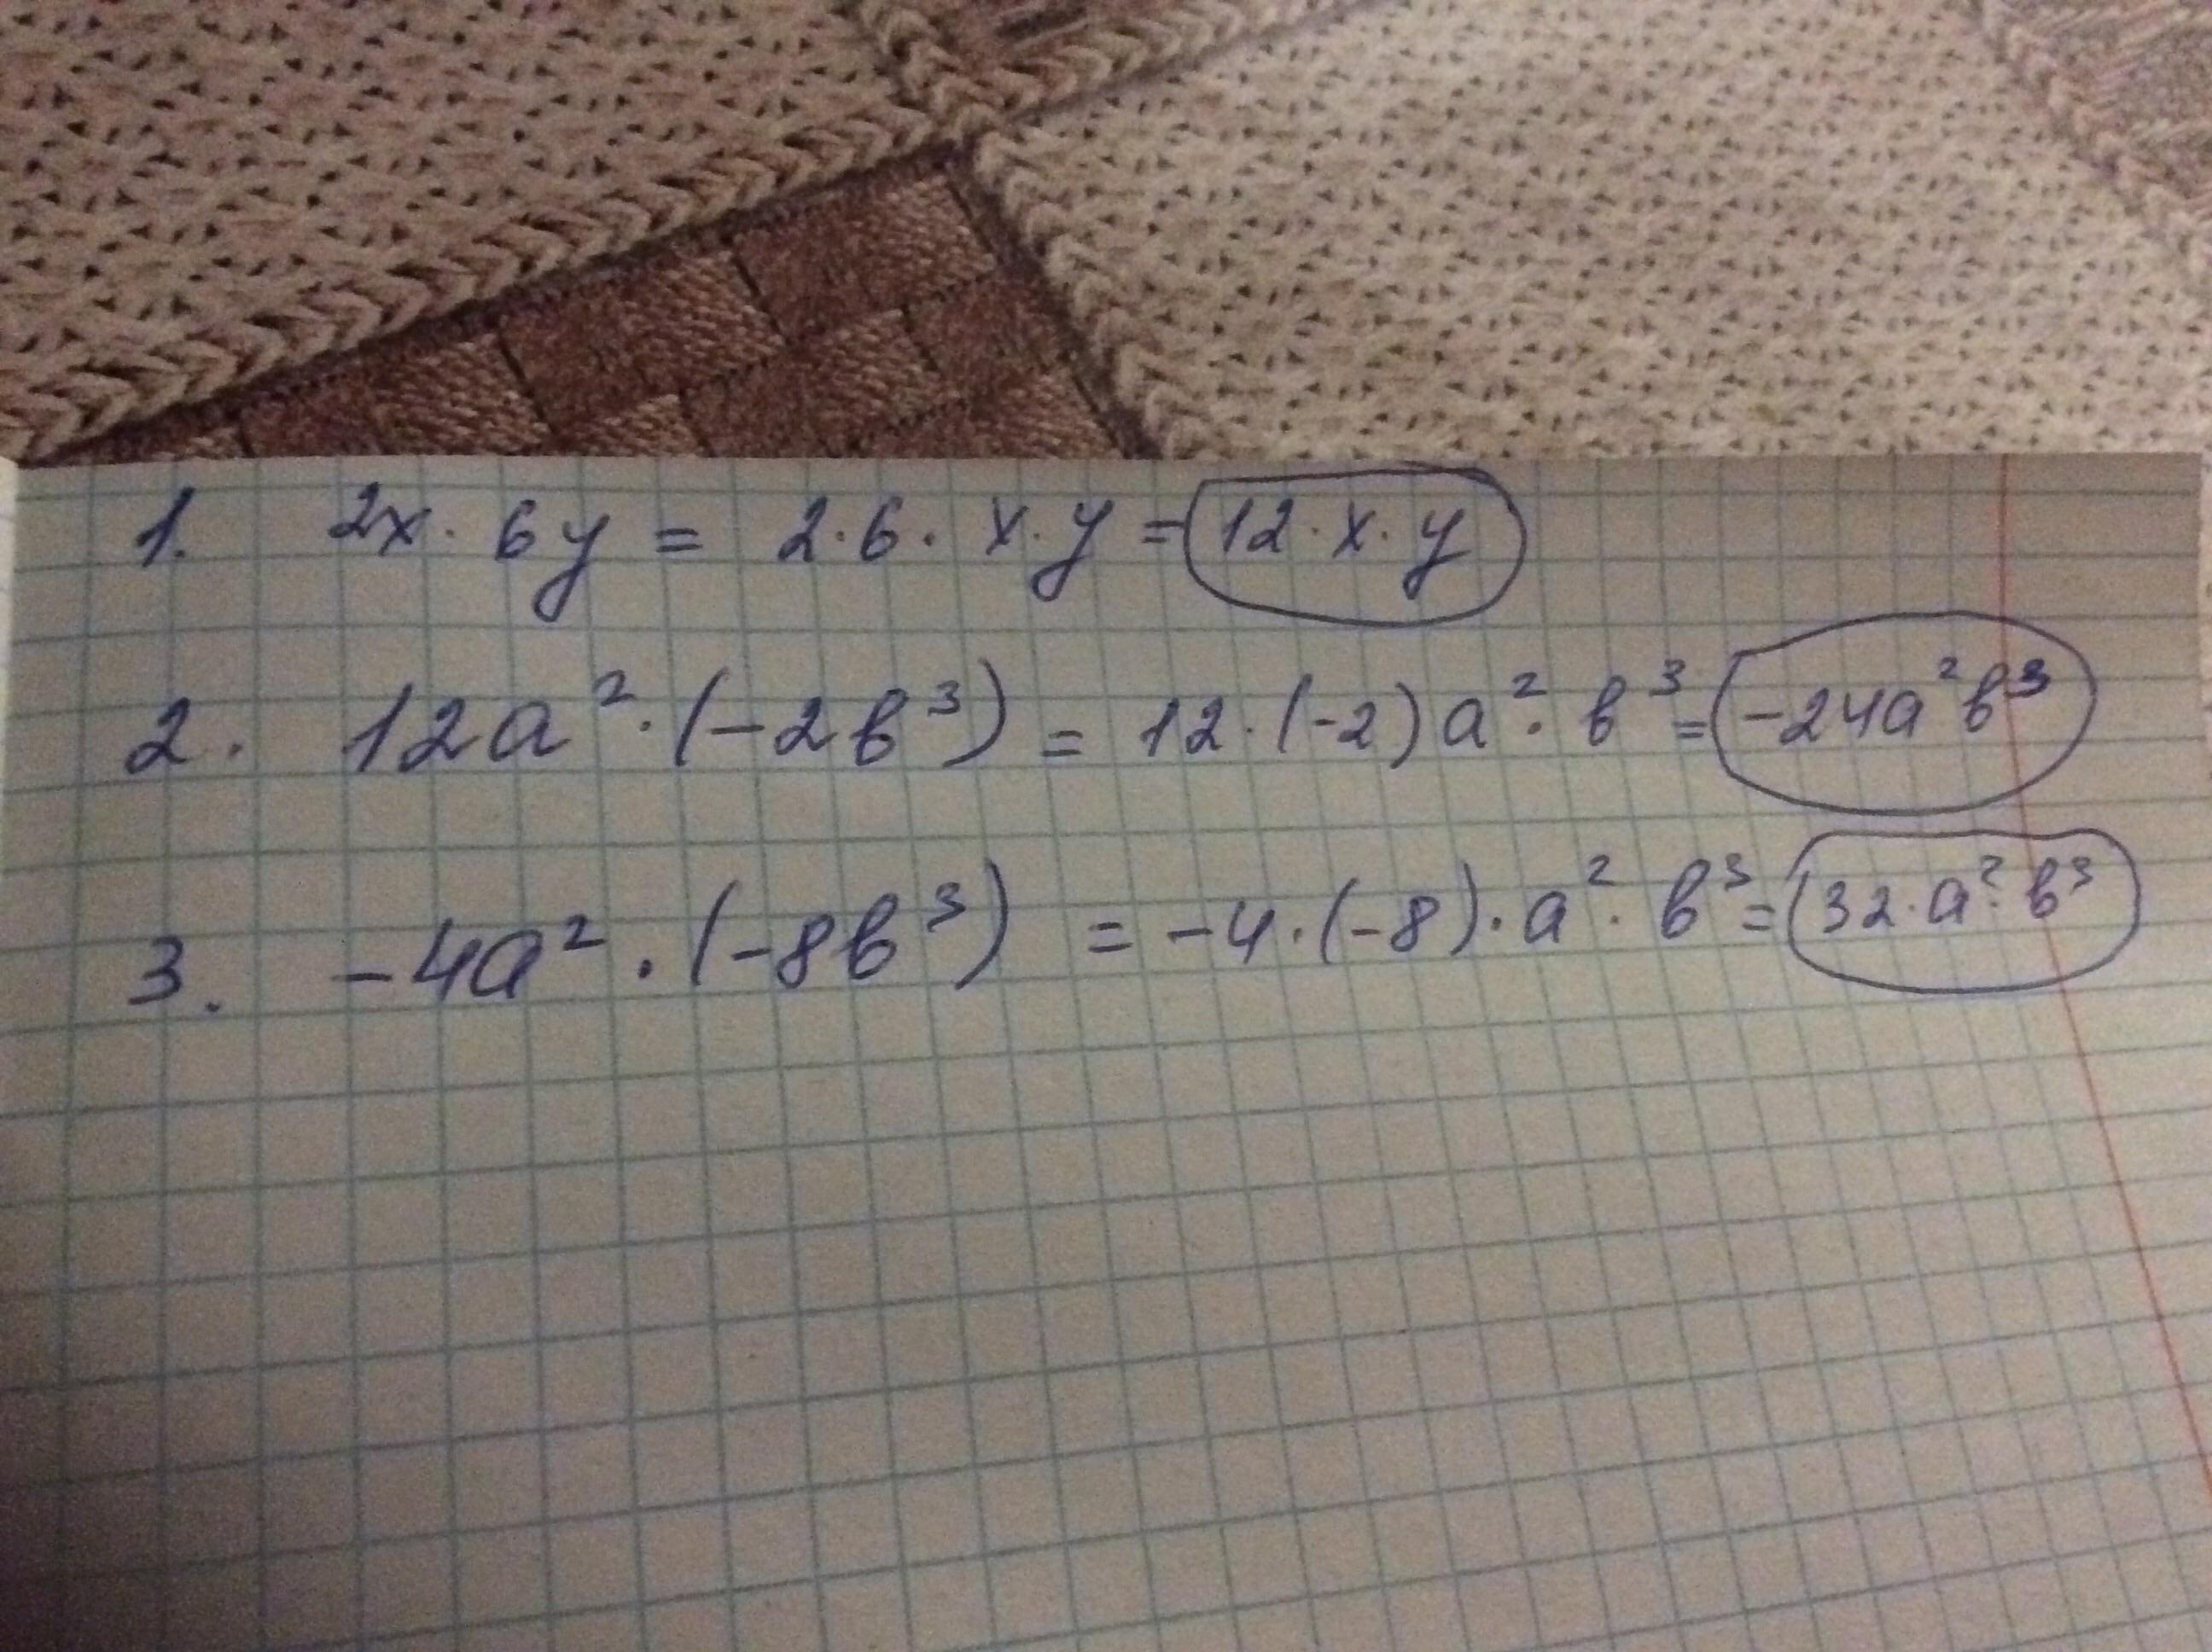 1. 2x · 6y = 2 · 6 · x · y = 12 · x · y
2. 12a² · (-2b³) = 12 · (-2) a² · b³ = -24a²b³
3. -4a² · (-8b³) = -4 · (-8) · a² · b³ = 32 · a² · b³